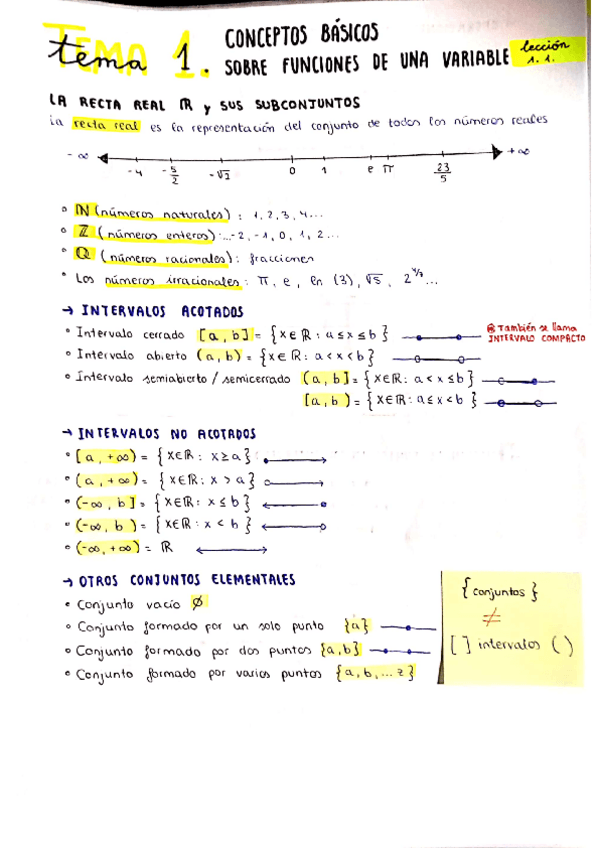 tema 1. CONCEPTOS BÁSICOS
SOBRE FUNCIONES DE UNA VARIABLE
lección
1. 1.
LA RECTA REAL ℝ y SUS SUBCONJUNTOS
La recta real es la representación del conjunto de todos los números reales
-∞ +∞
-4 -5/2 -√3 0 1 e π 23/5
• ℕ (números naturales) : 1, 2, 3, 4...
• ℤ (números enteros) : ...-2, -1, 0, 1, 2...
• ℚ (números racionales) : fracciones
• Los números irracionales : π, e, ln (3), √5, ...
→ INTERVALOS ACOTADOS
• Intervalo cerrado [a, b] = {x∈ℝ : a ≤ x ≤ b}
⊛ También se llama
INTERVALO COMPACTO
• Intervalo abierto (a, b) = {x∈ℝ : a < x < b}
• Intervalo semiabierto / semicerrado (a, b] = {x∈ℝ : a < x ≤ b}
[a, b) = {x∈ℝ : a ≤ x < b}
→ INTERVALOS NO ACOTADOS
• [a, +∞) = {x∈ℝ : x ≥ a}
• (a, +∞) = {x∈ℝ : x > a}
• (-∞, b] = {x∈ℝ : x ≤ b}
• (-∞, b) = {x∈ℝ : x < b}
• (-∞, +∞) = ℝ
→ OTROS CONJUNTOS ELEMENTALES
• Conjunto vacío ∅
• Conjunto formado por un solo punto {a}
• Conjunto formado por dos puntos {a, b}
• Conjunto formado por varios puntos {a, b, ... z}
{conjuntos}
≠
[ ] intervalos ( )